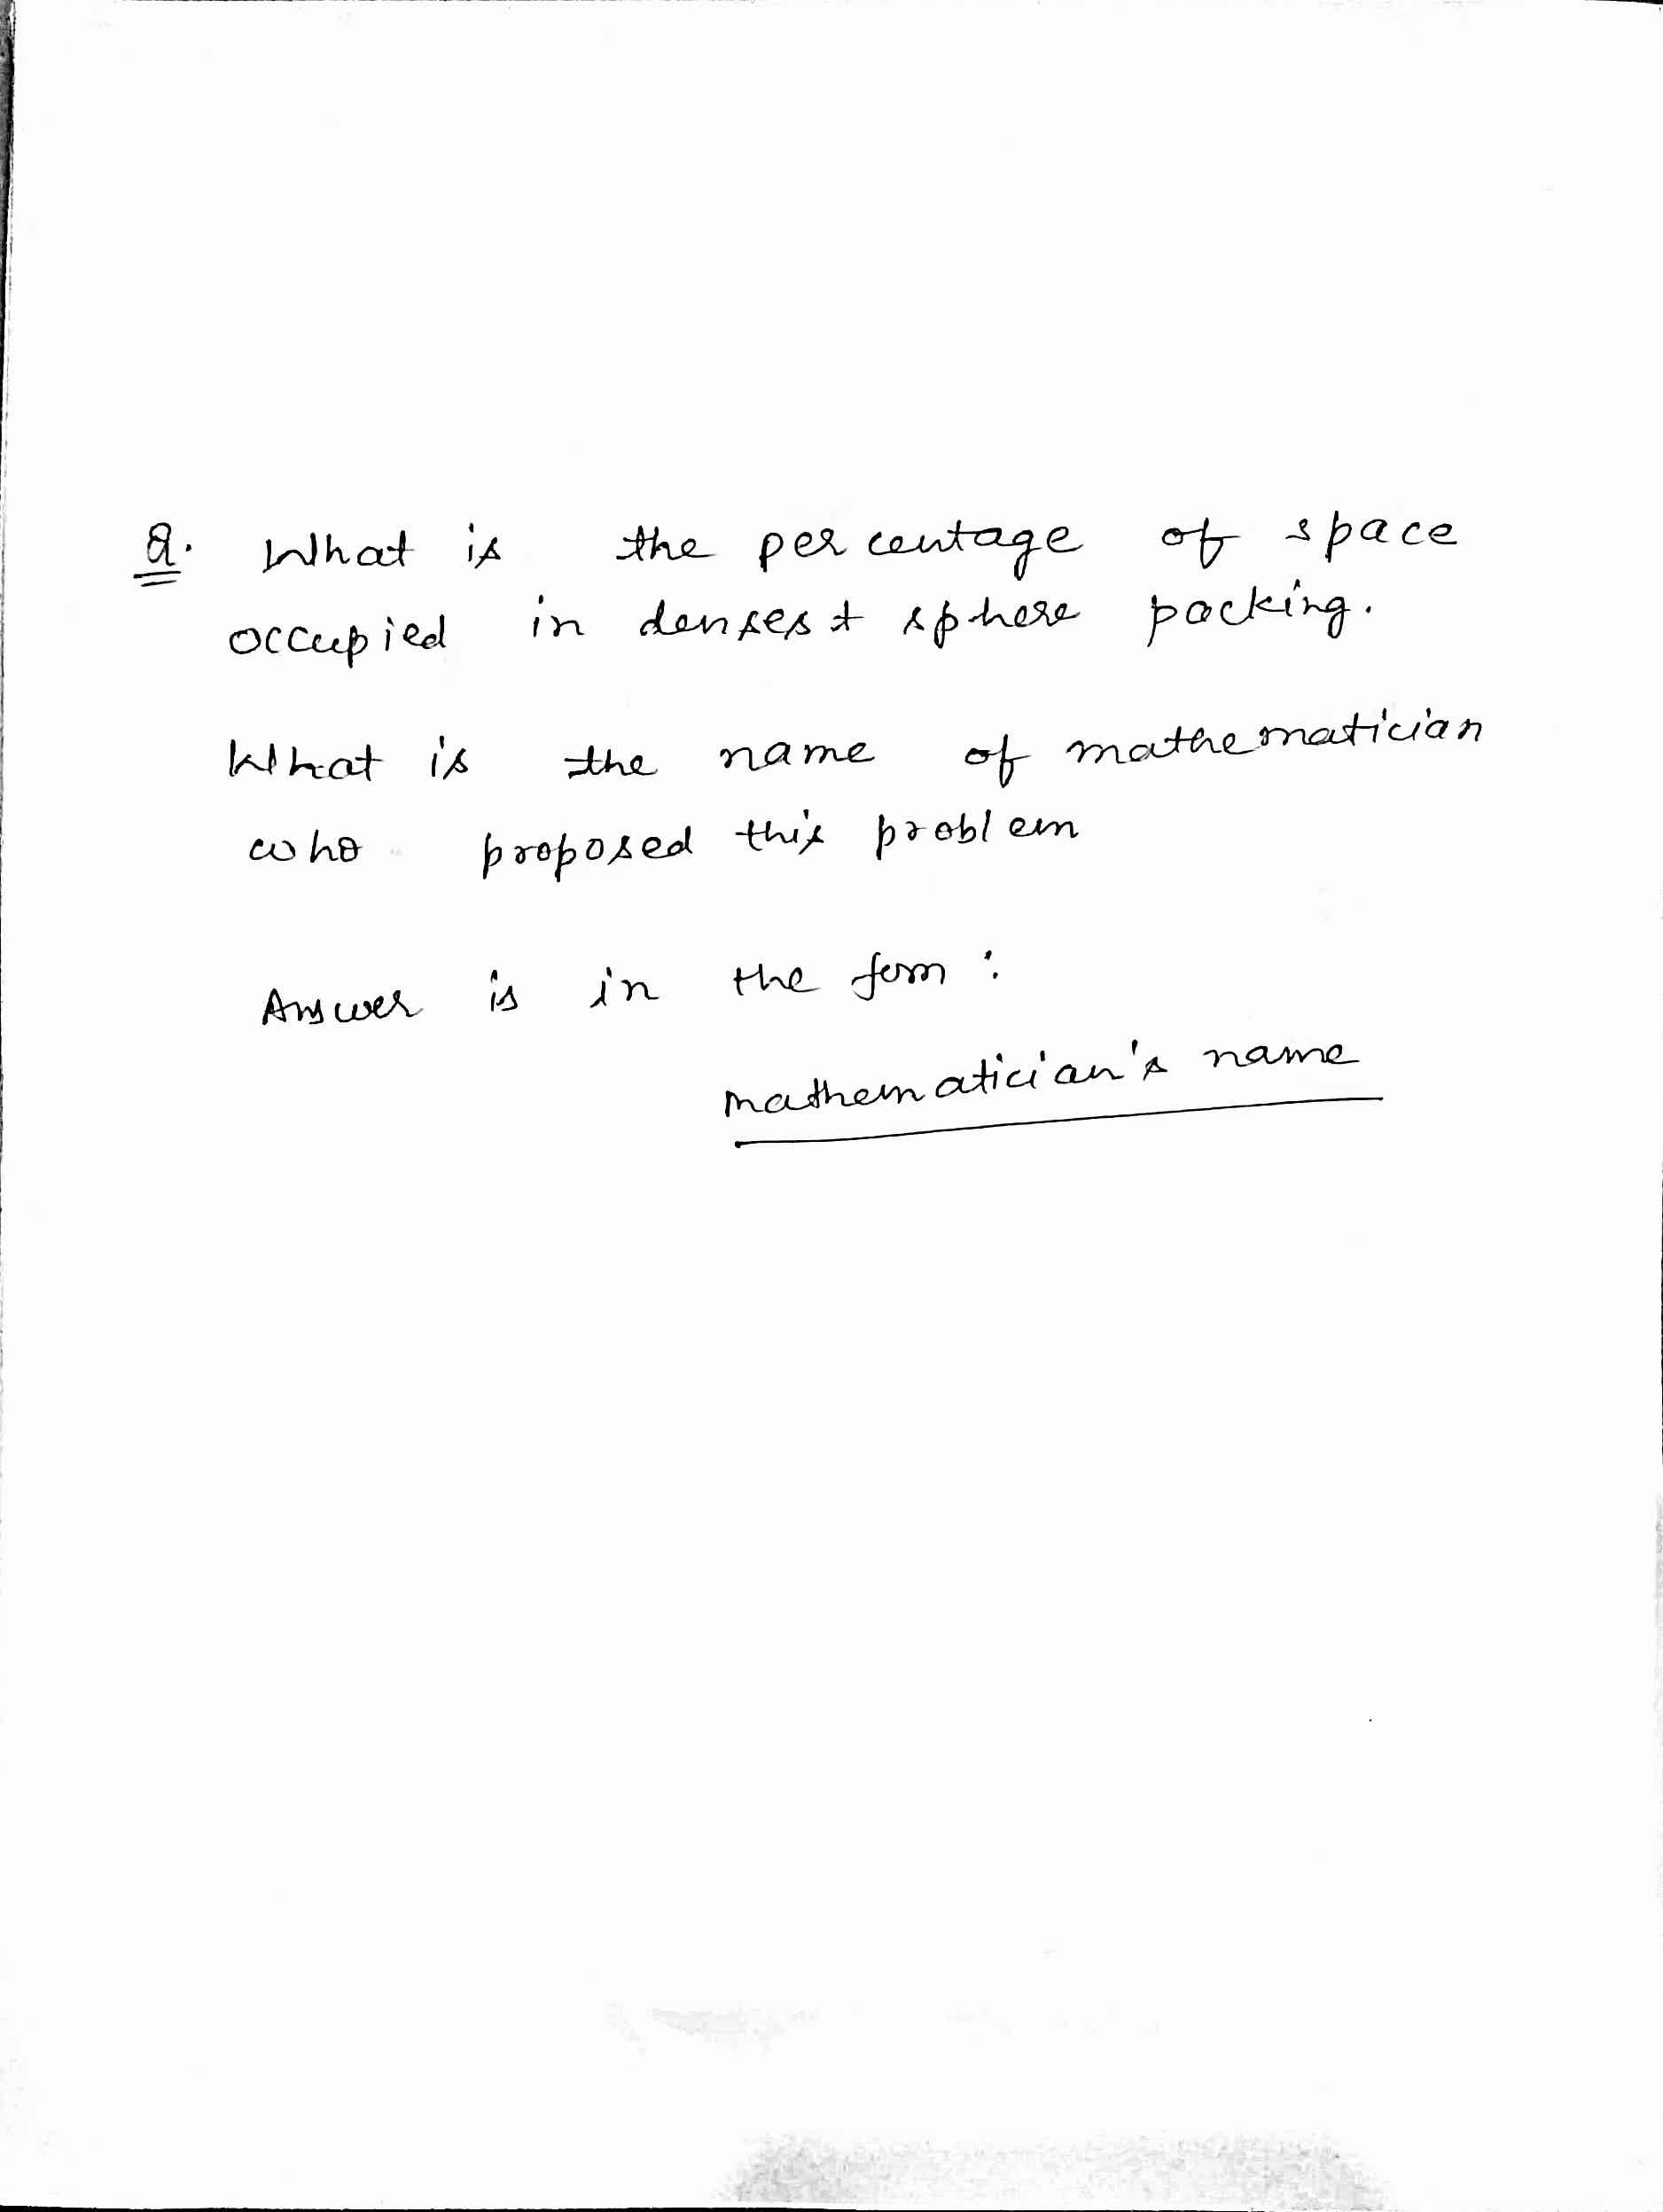 Q. What is the percentage of space
occupied in densest sphere packing.
What is the name of mathematician
who proposed this problem
Answer is in the form :
mathematician's name